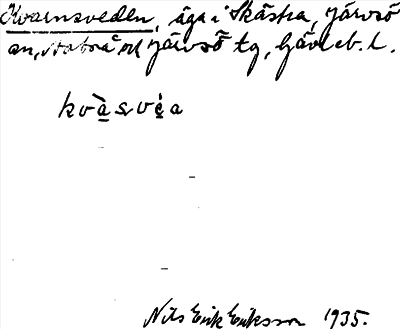 Kvarnsveden, äga i Skästra, Järvsö
sn, Stabrå ock Järvsö tg, Gävleb. l.
kvàsvéa
Nils Erik Eriksson 1935.